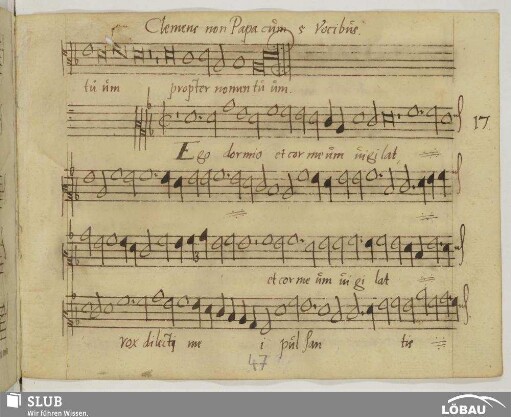 Clemens non Papa cum 5 Vocibus.
tuum propter nomen tuum.
17
Ego dormio et cor meum vigilat
et cor meum vigilat
vox dilecti me i pulsan tis
47
SLUB
Wir führen Wissen.
LÖBAU